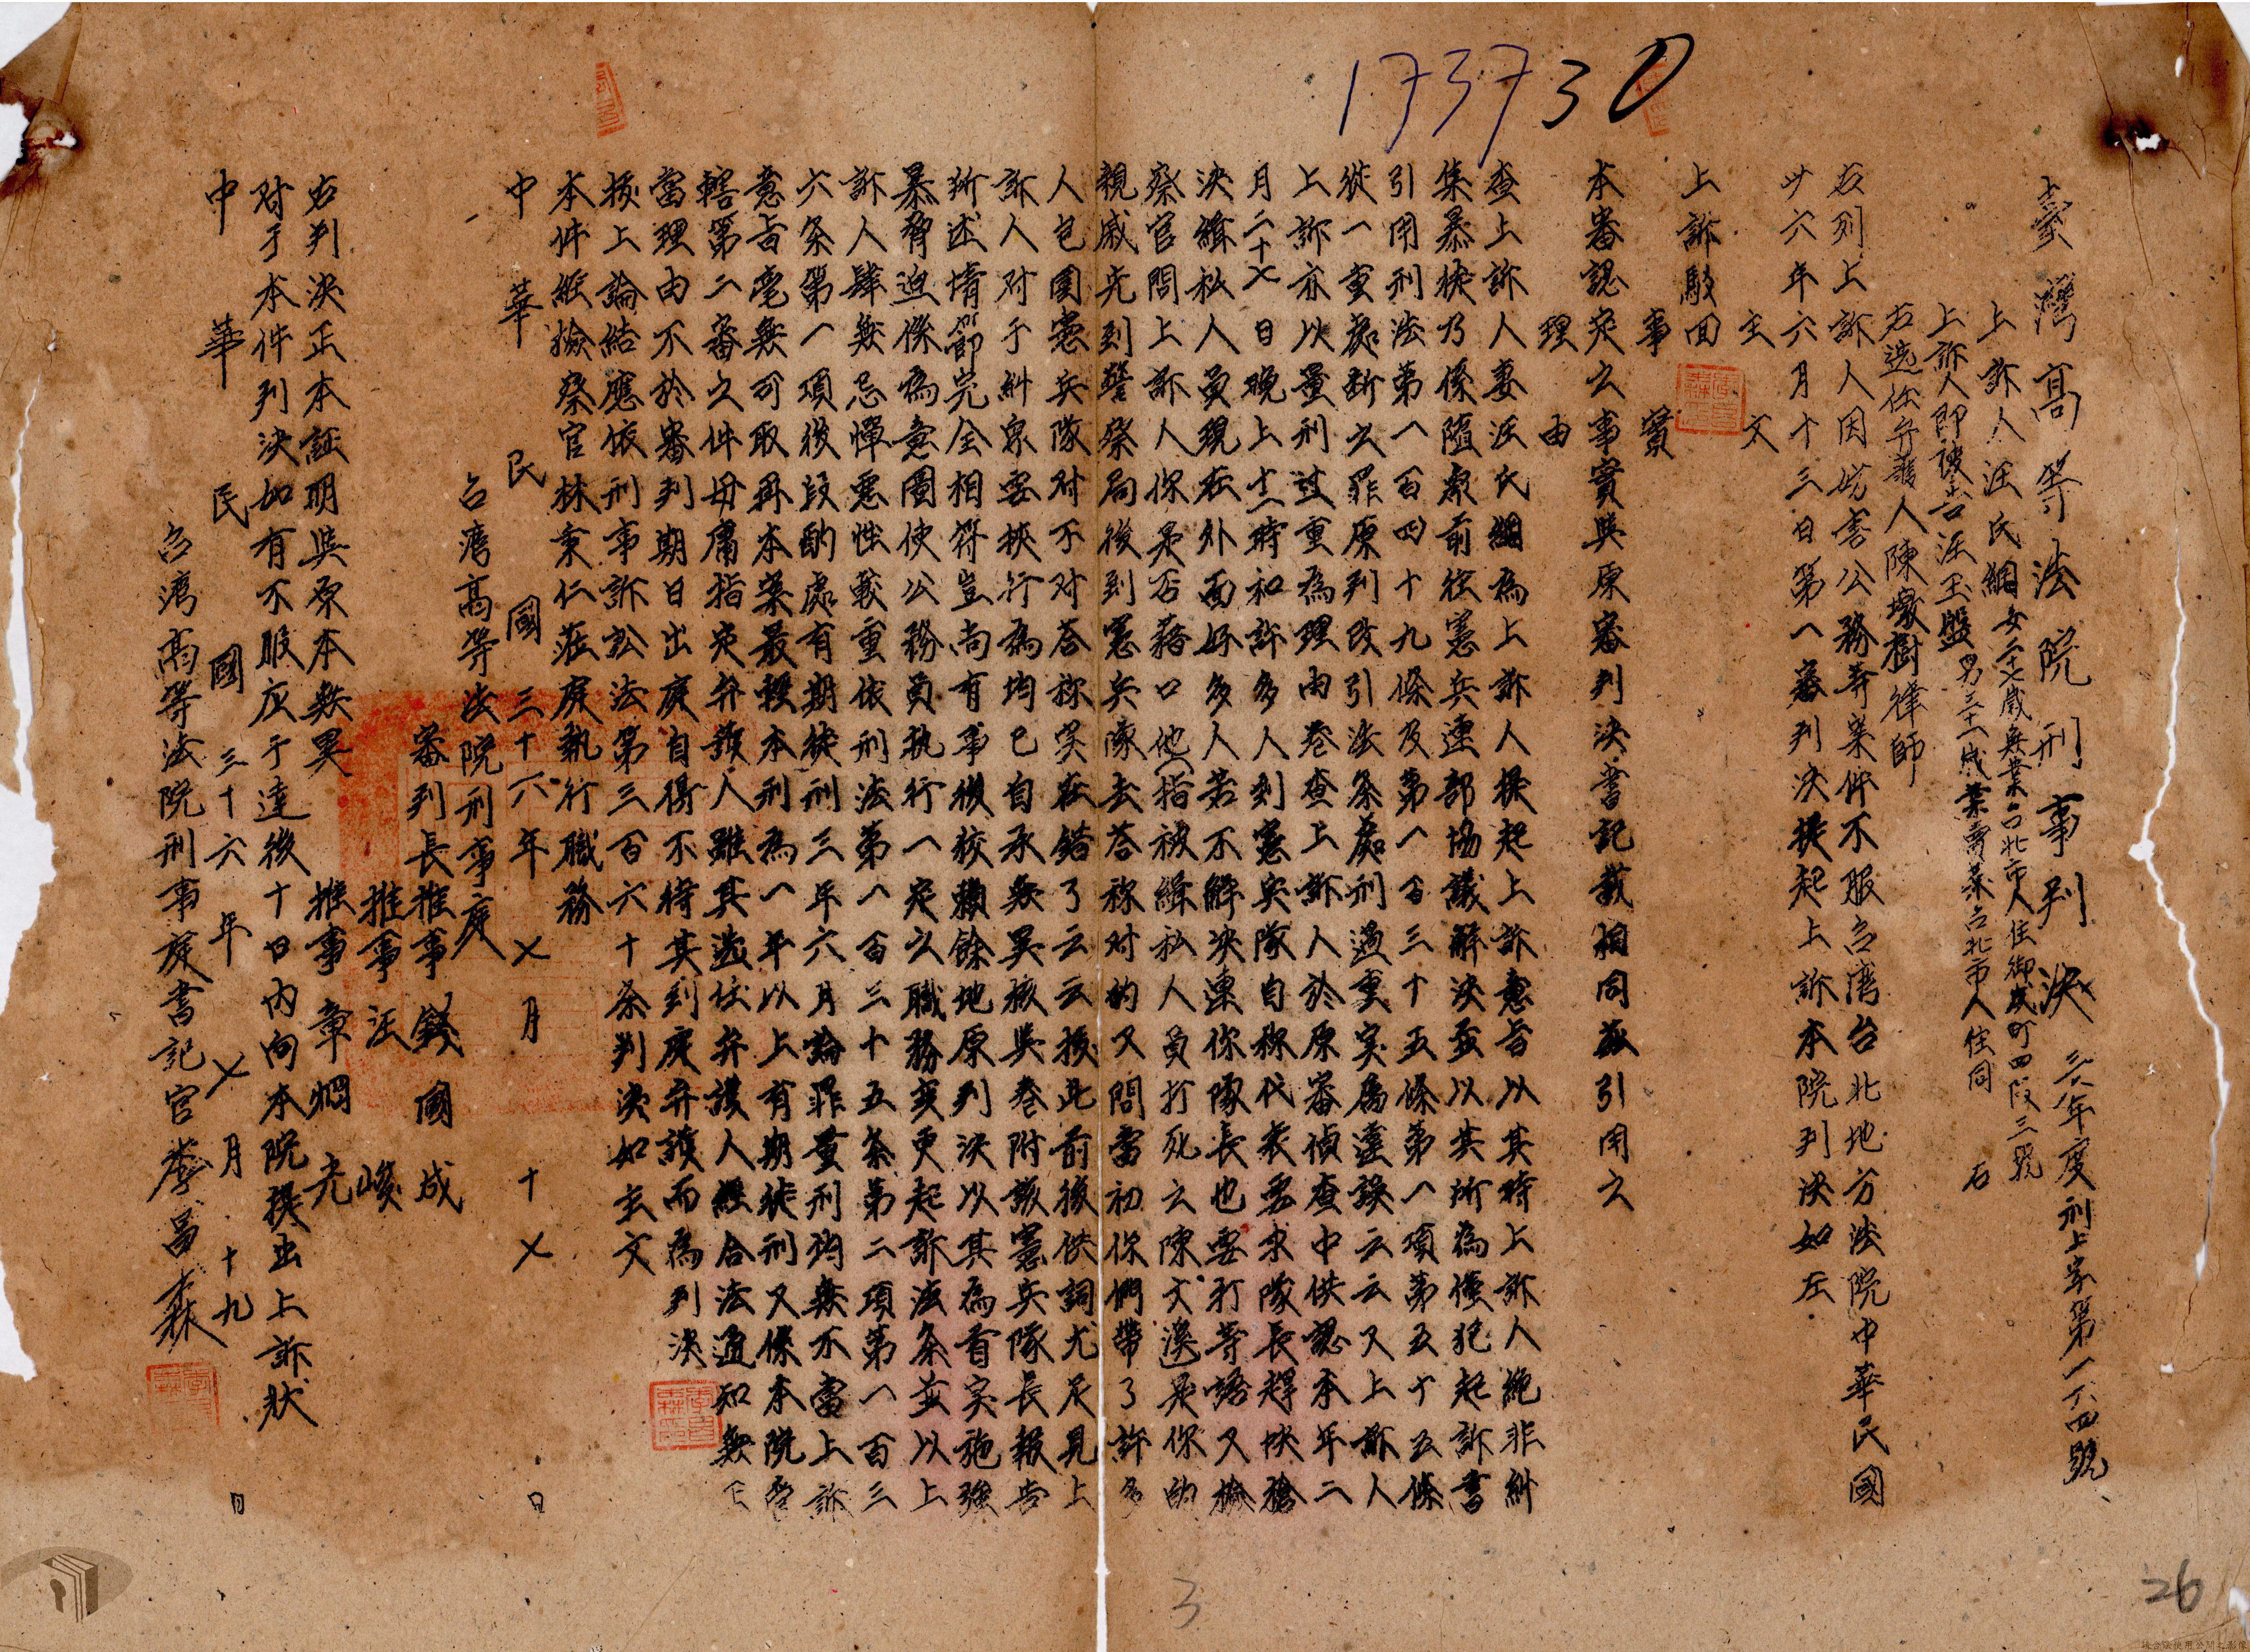 173730
臺灣高等法院刑事判決 三六年度刑上字第一六四號
上訴人汪氏綢女三十七歲無業台北市人住御成町四段三號
上訴人即被告汪玉盤男三十一歲業賣菜台北市人住同右
右選任弁護人陳墩樹律師
右列上訴人因妨害公務等案件不服台灣台北地方法院中華民國
卅六年六月十三日第一審判決提起上訴本院判決如左
主文
上訴駁回
事實
本審認定之事實與原審判決書記載相同茲引用之
理由
查上訴人妻汪氏綢為上訴人提起上訴意旨以其時上訴人絕非糾
集暴徒乃係隨眾前往憲兵連部協議解決並以其所為僅犯起訴書
引用刑法第一百四十九條及第一百三十五條第一項第五十五條
從一重處斷之罪原判改引法条處刑過重实屬違誤云云又上訴人
上訴亦以量刑過重為理由卷查上訴人於原審偵查中供認本年二
月二十七日晚上十一時和許多人到憲兵隊自称代表要求隊長趕快槍
決緝私人員現在外面好多人若不解決連你隊長也要打等語又檢
察官問上訴人你是否藉口他(指被緝私人員打死之陳文溪是你的
親戚先到警察局後到憲兵隊去答称对的又問當初你們帶了許多
人包圍憲兵隊对不对答称実在錯了云云據此前後供詞尤足見上
訴人对于糾眾要挾行為均已自承無異核與卷附該憲兵隊長報告
所述情節完全相符豈尚有事後狡賴餘地原列決以其為首实施強
暴脅迫係為意圖使公務員執行一定之職務变更起訴法条並以上
訴人肆無忌憚惡性較重依刑法第一百三十五条第二項第一百三
六条第一項後段酌處有期徒刑三年六月論罪量刑均無不當上訴
意旨毫無可取再本案最輕本刑為一年以上有期徒刑又係本院管
轄第二審之件毋庸指定弁護人雖其選任弁護人經合法通知無正
當理由不於審判期日出庭自得不待其到庭弁護而為列決
據上論結應依刑事訴訟法第三百六十条判決如主文
本件經檢察官林秉仁蒞庭執行職務
中華民國三十六年七月十七日
台灣高等法院刑事庭
審判長推事錢國成
推事汪峻
推事章炯光
右判決正本証明與原本無異
对于本件列決如有不服应于達後十日內向本院提出上訴狀
中華民國三十六年七月十九日
台灣高等法院刑事庭書記官李昌森
3
26